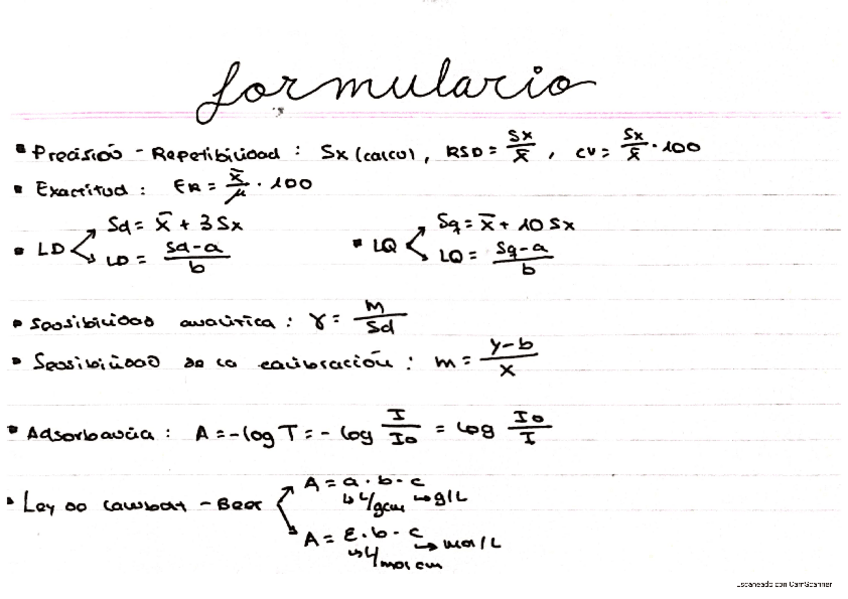 formulario
• Precisión - Repetibilidad : Sx (calcu), RSD = Sx/x̄ , CV = Sx/x̄ · 100
• Exactitud : ER = x̄/μ · 100
• LD Sd = x̄ + 3Sx
LD = Sd-a/b
• LQ Sq = x̄ + 10Sx
LQ = Sq-a/b
• Sensibilidad analítica : γ = m/Sd
• Sensibilidad de la calibración : m = y-b/x
• Adsorbancia : A = -log T = - log I/Io = log Io/I
• Ley de Lambert - Beer
A = a · b · c
↳ L/gcm ↳ g/L
A = ε · b · c
↳ L/mol cm ↳ mol/L
Escaneado con CamScanner